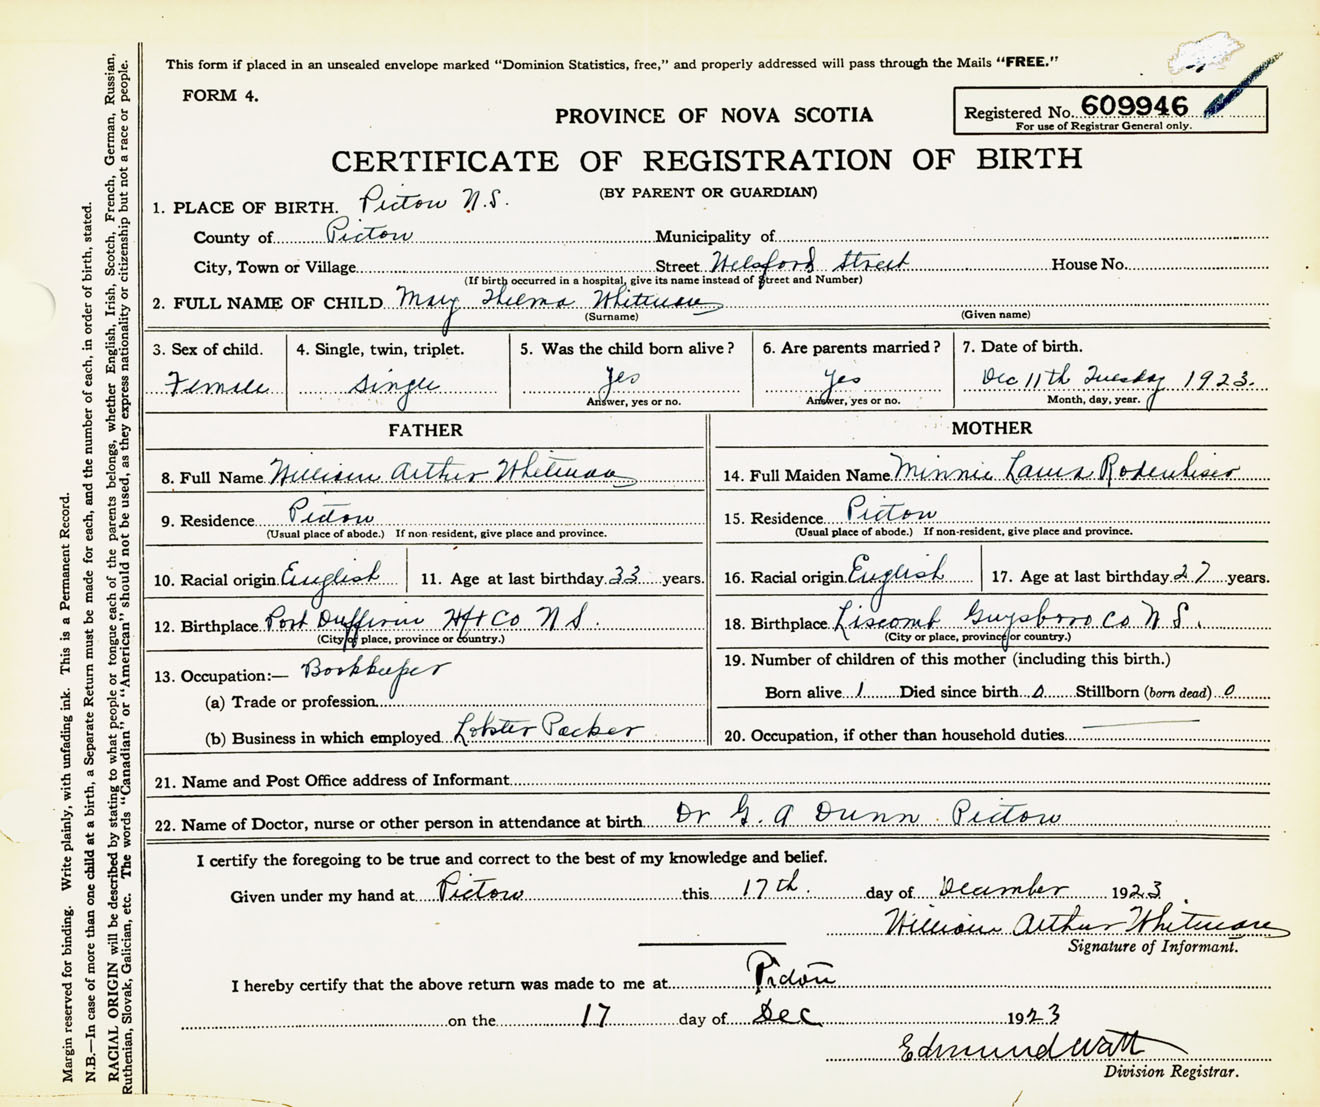 This form if placed in an unsealed envelope marked "Dominion Statistics, free," and properly addressed will pass through the Mails "FREE."
FORM 4.
PROVINCE OF NOVA SCOTIA
Registered No. 609946
For use of Registrar General only.
CERTIFICATE OF REGISTRATION OF BIRTH
(BY PARENT OR GUARDIAN)
1. PLACE OF BIRTH. Pictou N.S.
County of Pictou Municipality of
City, Town or Village Street Welsford Street House No.
(If birth occurred in a hospital, give its name instead of Street and Number)
2. FULL NAME OF CHILD Mary Thelma Whitman
(Surname) (Given name)
3. Sex of child. 4. Single, twin, triplet. 5. Was the child born alive? 6. Are parents married? 7. Date of birth.
Female Single Yes Yes Dec 11th Tuesday 1923.
Answer, yes or no. Answer, yes or no. Month, day, year.
FATHER MOTHER
8. Full Name William Arthur Whitman 14. Full Maiden Name Minnie Laura Rodenhiser
9. Residence Pictou 15. Residence Pictou
(Usual place of abode.) If non-resident, give place and province. (Usual place of abode.) If non-resident, give place and province.
10. Racial origin English 11. Age at last birthday 33 years. 16. Racial origin English 17. Age at last birthday 27 years.
12. Birthplace Port Dufferin Hfx Co N S. 18. Birthplace Liscomb Guysboro Co N.S.
(City or place, province or country.) (City or place, province or country.)
13. Occupation:— Bookkeeper 19. Number of children of this mother (including this birth.)
(a) Trade or profession Born alive 1 Died since birth 0 Stillborn (born dead) 0
(b) Business in which employed Lobster Packer 20. Occupation, if other than household duties
21. Name and Post Office address of Informant
22. Name of Doctor, nurse or other person in attendance at birth Dr G. A Dunn Pictou
I certify the foregoing to be true and correct to the best of my knowledge and belief.
Given under my hand at Pictou this 17th. day of December 1923
William Arthur Whitman
Signature of Informant.
I hereby certify that the above return was made to me at Pictou
on the 17 day of Dec 1923
Edmund Watt
Division Registrar.
Margin reserved for binding. Write plainly, with unfading ink. This is a Permanent Record.
N.B.—In case of more than one child at a birth, a Separate Return must be made for each, and the number of each, in order of birth, stated.
RACIAL ORIGIN will be described by stating to what people or tongue each of the parents belongs, whether English, Irish, Scotch, French, German, Russian,
Ruthenian, Slovak, Galician, etc. The words "Canadian" or "American" should not be used, as they express nationality or citizenship but not a race or people.